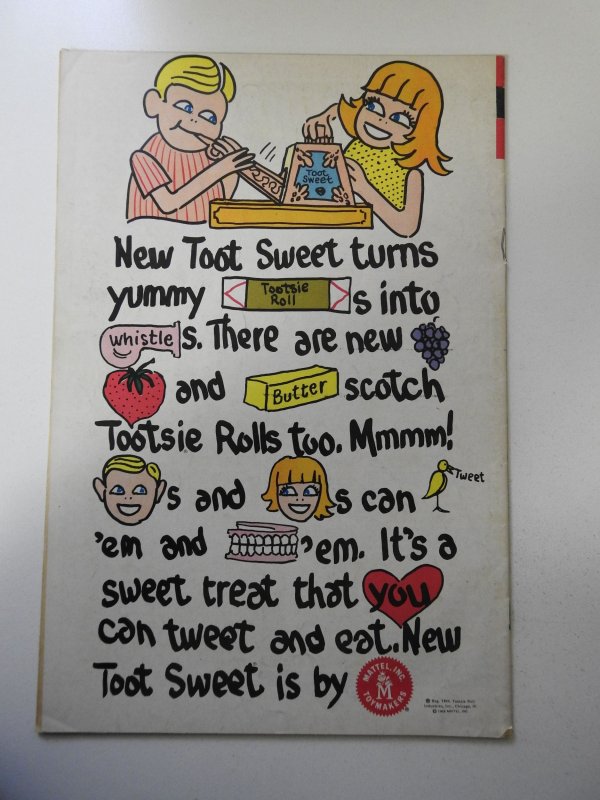 Toot
Sweet
New Toot Sweet turns
yummy Tootsie Roll s into
whistle s. There are new
and Butter scotch
Tootsie Rolls too. Mmmm!
s and s can Tweet
'em and 'em. It's a
sweet treat that you
can tweet and eat. New
Toot Sweet is by MATTEL, INC. M TOYMAKERS